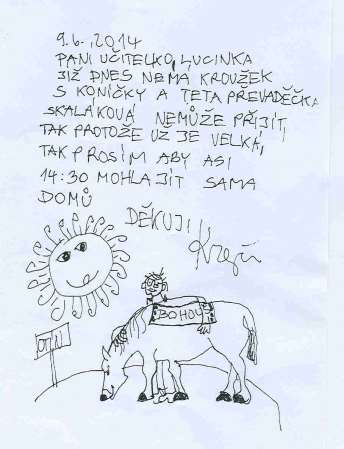 9.6.,2014
PANÍ UČITELKO, LUCINKA
JIŽ DNES NEMÁ KROUŽEK
S KONÍČKY A TETA PŘEVADĚČKA
SKALÁKOVÁ NEMŮŽE PŘIJÍT,
TAK PROTOŽE UŽ JE VELKÁ,
TAK PROSÍM ABY ASI
14:30 MOHLA JÍT SAMA
DOMŮ
DĚKUJI!
BOHOUŠ